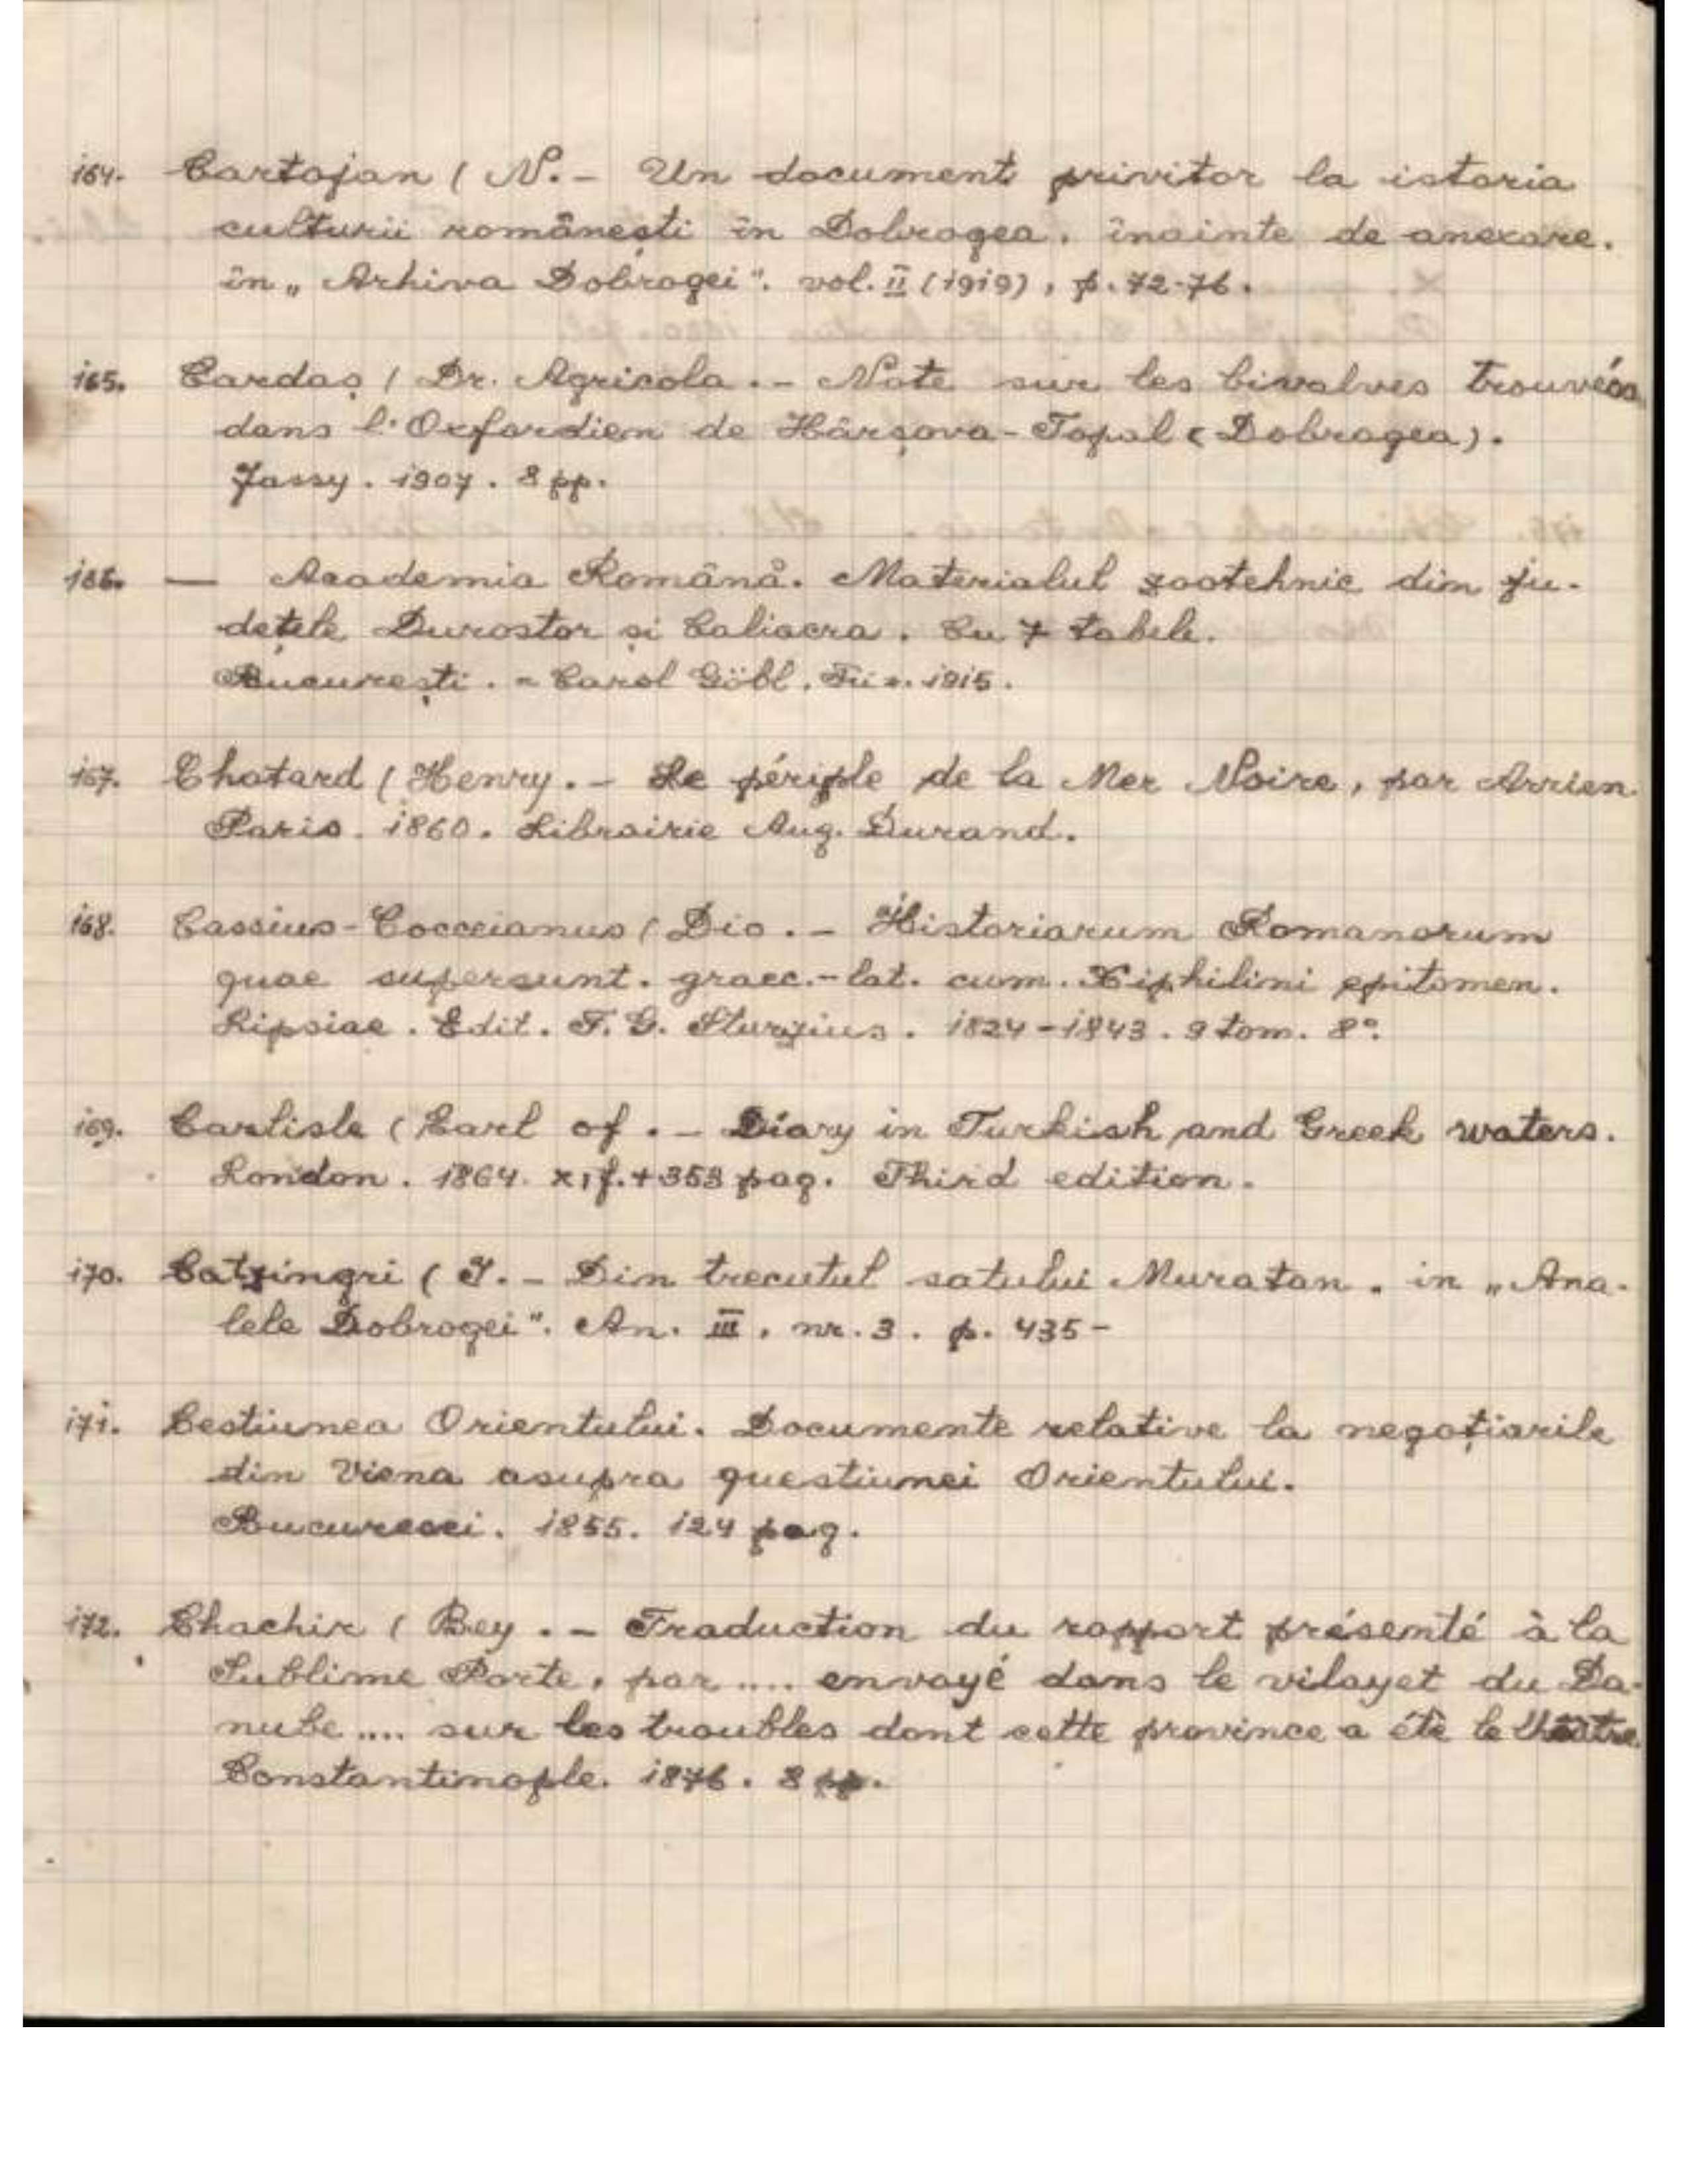 164. Cartojan (N. - Un document privitor la istoria
culturii românești în Dobrogea. înainte de anexare.
în „Arhiva Dobrogei". vol. II (1919), p. 72-76.
165. Cardaș (Dr. Agricola. - Note sur les bivalves trouvées
dans l'Oxfordien de Hârșova-Topal (Dobrogea).
Jassy. 1907. 8 pp.
166. — Academia Română. Materialul zootehnic din ju-
dețele Durostor și Caliacra. Cu 7 tabele.
București. - Carol Göbl. 1915.
167. Chotard (Henry. - Le périple de la Mer Noire, par Arrien.
Paris. 1860. Librairie Aug. Durand.
168. Cassius-Cocceianus (Dio. - Historiarum Romanorum
quae supersunt. graec.-lat. cum. Xiphilini epitomen.
Lipsiae. Edit. F. G. Sturzius. 1824-1843. 9 tom. 8°.
169. Carlisle (Earl of. - Diary in Turkish and Greek waters.
London. 1864. 353 pag. Third edition.
170. Catzingri (I. - Din trecutul satului Muratan. in „Ana-
lele Dobrogei". An. III. nr. 3. p. 435-
171. Cestiunea Orientului. Documente relative la negoțiarile
din Viena asupra questiunei Orientului.
Bucuresci. 1855. 124 pag.
172. Chachir (Bey. - Traduction du rapport présenté à la
Sublime Porte, par .... envoyé dans le vilayet du Da-
nube .... sur les troubles dont cette province a été le théâtre.
Constantinople. 1876. 8 pp.